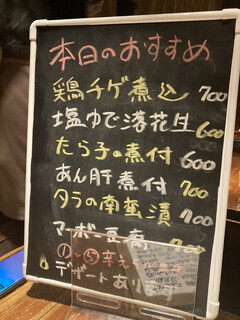 本日のおすすめ
鶏チゲ煮込 700
塩ゆで落花生 600
たら子の煮付 600
あん肝煮付 700
タラの南蛮漬 700
マーボー豆腐 700
デザートあります